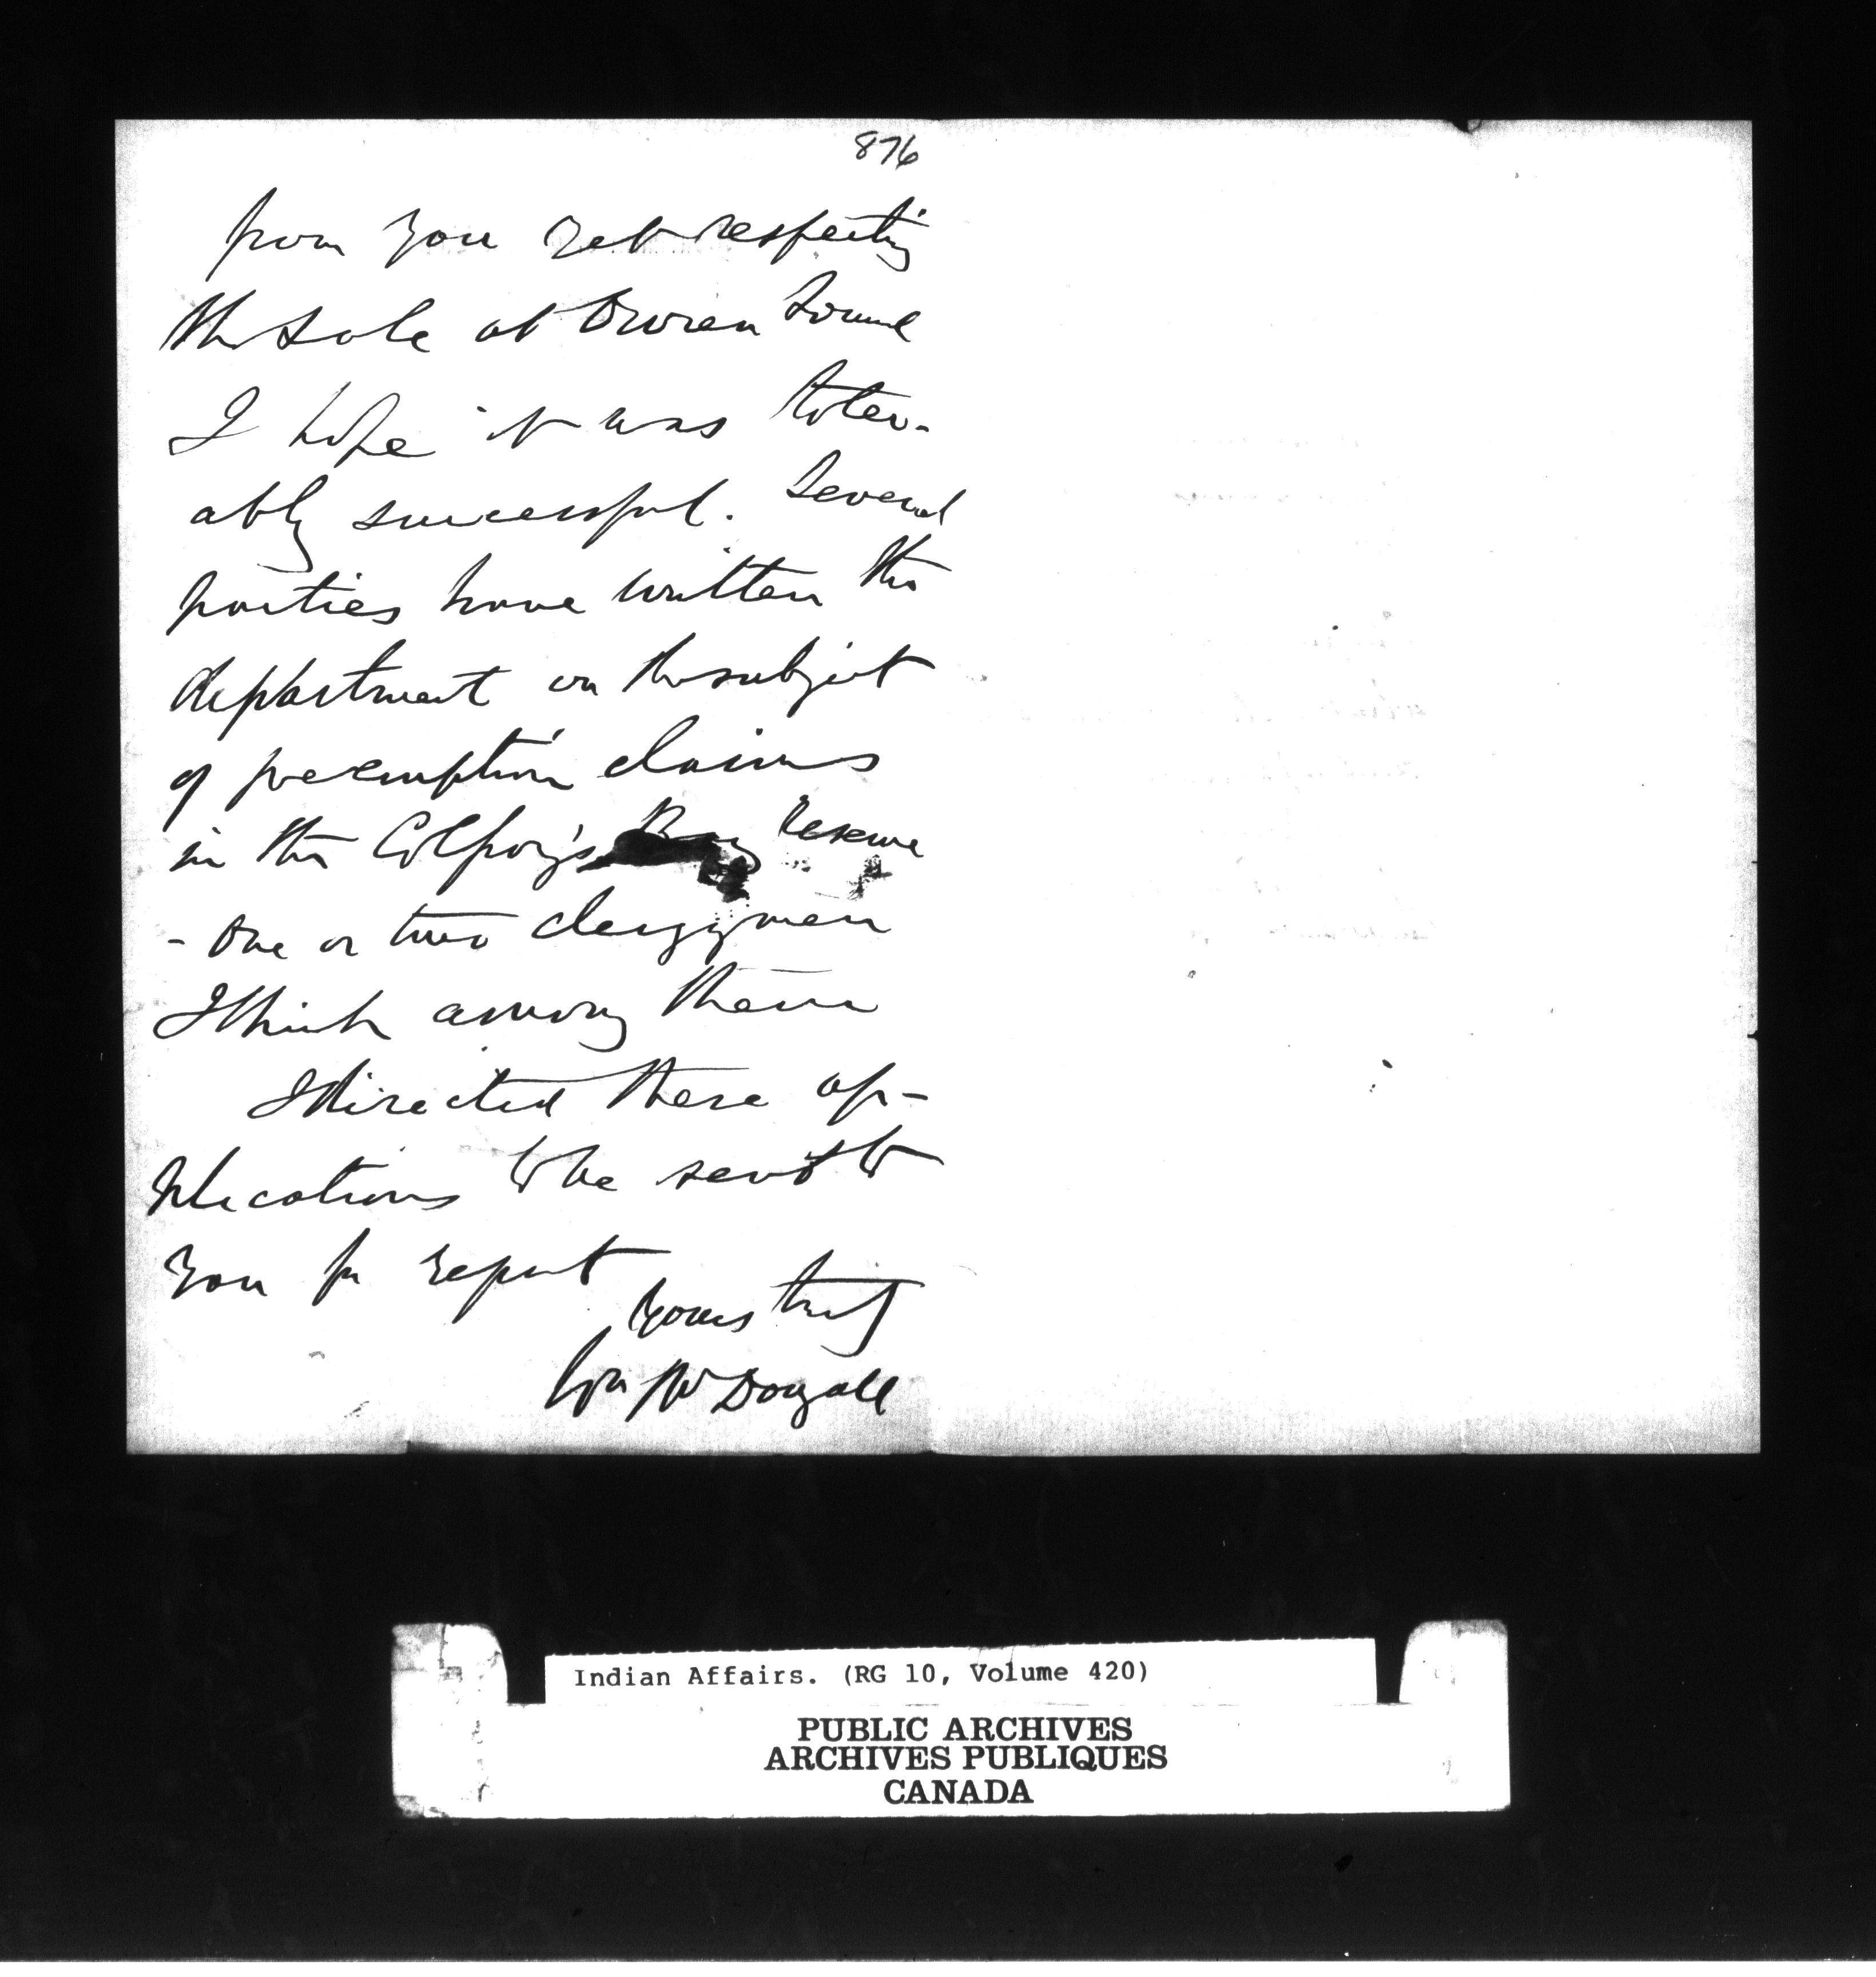 876
from you yet respecting
the sale at Owen Sound
I hope it was toler-
ably successful. Several
parties have written the
department on the subject
of preemption claims
in the Colpoy's Bay Reserve
- one or two clergymen
I think among them
I directed these ap-
plications to be sent to
you for report
Yours truly
Wm McDougall
Indian Affairs. (RG 10, Volume 420)
PUBLIC ARCHIVES
ARCHIVES PUBLIQUES
CANADA